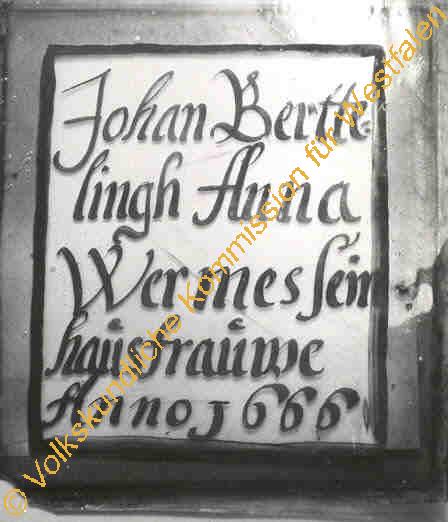 Johan Bertte-
lingh Anna
Wermes sein
haüsfraüwe
Anno 1666
© Volkskundliche Kommission für Westfalen